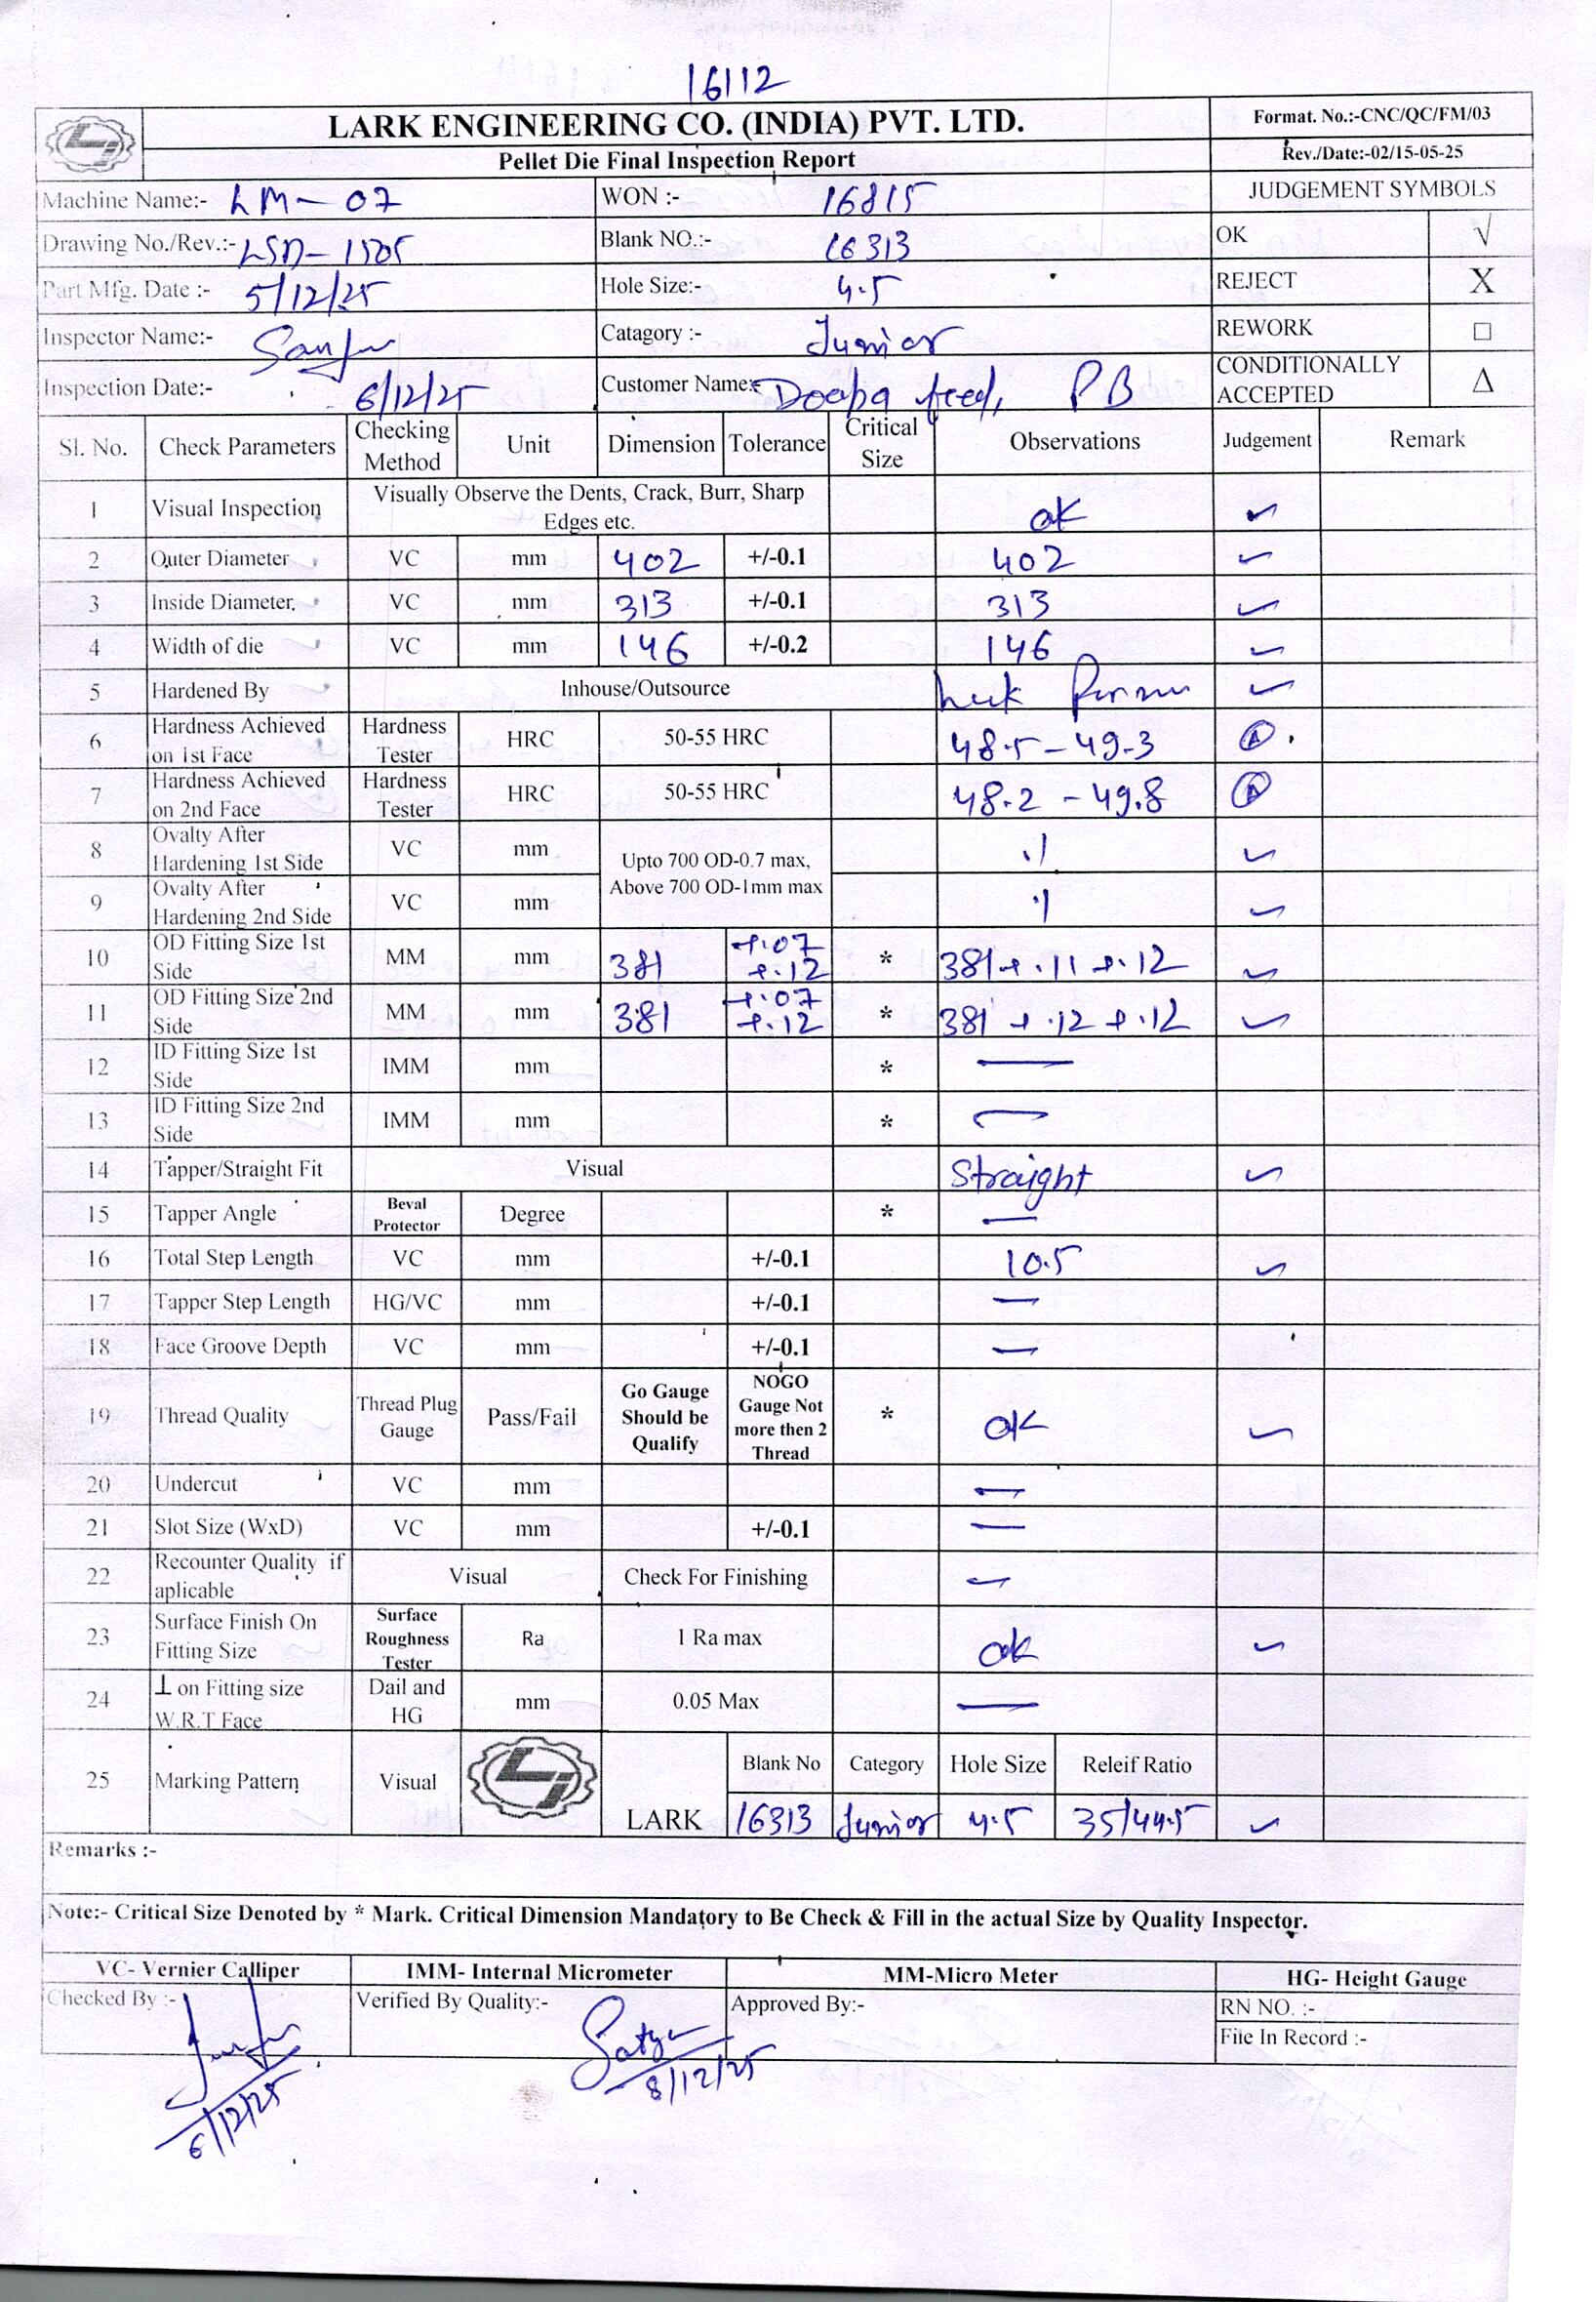 16112
LARK ENGINEERING CO. (INDIA) PVT. LTD.
Format. No.:-CNC/QC/FM/03
Pellet Die Final Inspection Report
Rev./Date:-02/15-05-25
Machine Name:- LM-07 WON :- 16815 JUDGEMENT SYMBOLS
Drawing No./Rev.:- LSD-1505 Blank NO.:- 16313 OK √
Part Mfg. Date :- 5/12/25 Hole Size:- 4.5 REJECT X
Inspector Name:- Catagory :- Junior REWORK □
Inspection Date:- 6/12/25 Customer Name:- Doaba feed, PB CONDITIONALLY ACCEPTED Δ
Sl. No. Check Parameters Checking Method Unit Dimension Tolerance Critical Size Observations Judgement Remark
1 Visual Inspection Visually Observe the Dents, Crack, Burr, Sharp Edges etc. ok ✓
2 Outer Diameter VC mm 402 +/-0.1 402 ✓
3 Inside Diameter VC mm 313 +/-0.1 313 ✓
4 Width of die VC mm 146 +/-0.2 146 ✓
5 Hardened By Inhouse/Outsource ✓
6 Hardness Achieved on 1st Face Hardness Tester HRC 50-55 HRC 48.5-49.3
7 Hardness Achieved on 2nd Face Hardness Tester HRC 50-55 HRC 48.2-49.8
8 Ovalty After Hardening 1st Side VC mm Upto 700 OD-0.7 max, Above 700 OD-1mm max .1 ✓
9 Ovalty After Hardening 2nd Side VC mm .1 ✓
10 OD Fitting Size 1st Side MM mm 381 +.07 +.12 * 381 +.11 +.12 ✓
11 OD Fitting Size 2nd Side MM mm 381 +.07 +.12 * 381 +.12 +.12 ✓
12 ID Fitting Size 1st Side IMM mm * —
13 ID Fitting Size 2nd Side IMM mm * —
14 Tapper/Straight Fit Visual Straight ✓
15 Tapper Angle Beval Protector Degree * —
16 Total Step Length VC mm +/-0.1 10.5 ✓
17 Tapper Step Length HG/VC mm +/-0.1 —
18 Face Groove Depth VC mm +/-0.1 —
19 Thread Quality Thread Plug Gauge Pass/Fail Go Gauge Should be Qualify NOGO Gauge Not more then 2 Thread * ok ✓
20 Undercut VC mm —
21 Slot Size (WxD) VC mm +/-0.1 —
22 Recounter Quality if aplicable Visual Check For Finishing —
23 Surface Finish On Fitting Size Surface Roughness Tester Ra 1 Ra max ok ✓
24 ⊥ on Fitting size W.R.T Face Dail and HG mm 0.05 Max —
25 Marking Pattern Visual LARK Blank No Category Hole Size Releif Ratio
16313 Junior 4.5 35/44.5 ✓
Remarks :-
Note:- Critical Size Denoted by * Mark. Critical Dimension Mandatory to Be Check & Fill in the actual Size by Quality Inspector.
VC- Vernier Calliper IMM- Internal Micrometer MM-Micro Meter HG- Height Gauge
Checked By :- Verified By Quality:- Approved By:- RN NO. :-
File In Record :-
Satya
8/12/25
6/12/25